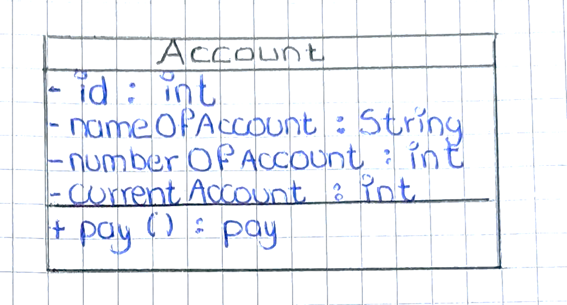 Account
- id : int
- nameOfAccount : String
- numberOfAccount : int
- currentAccount : int
+ pay () : pay